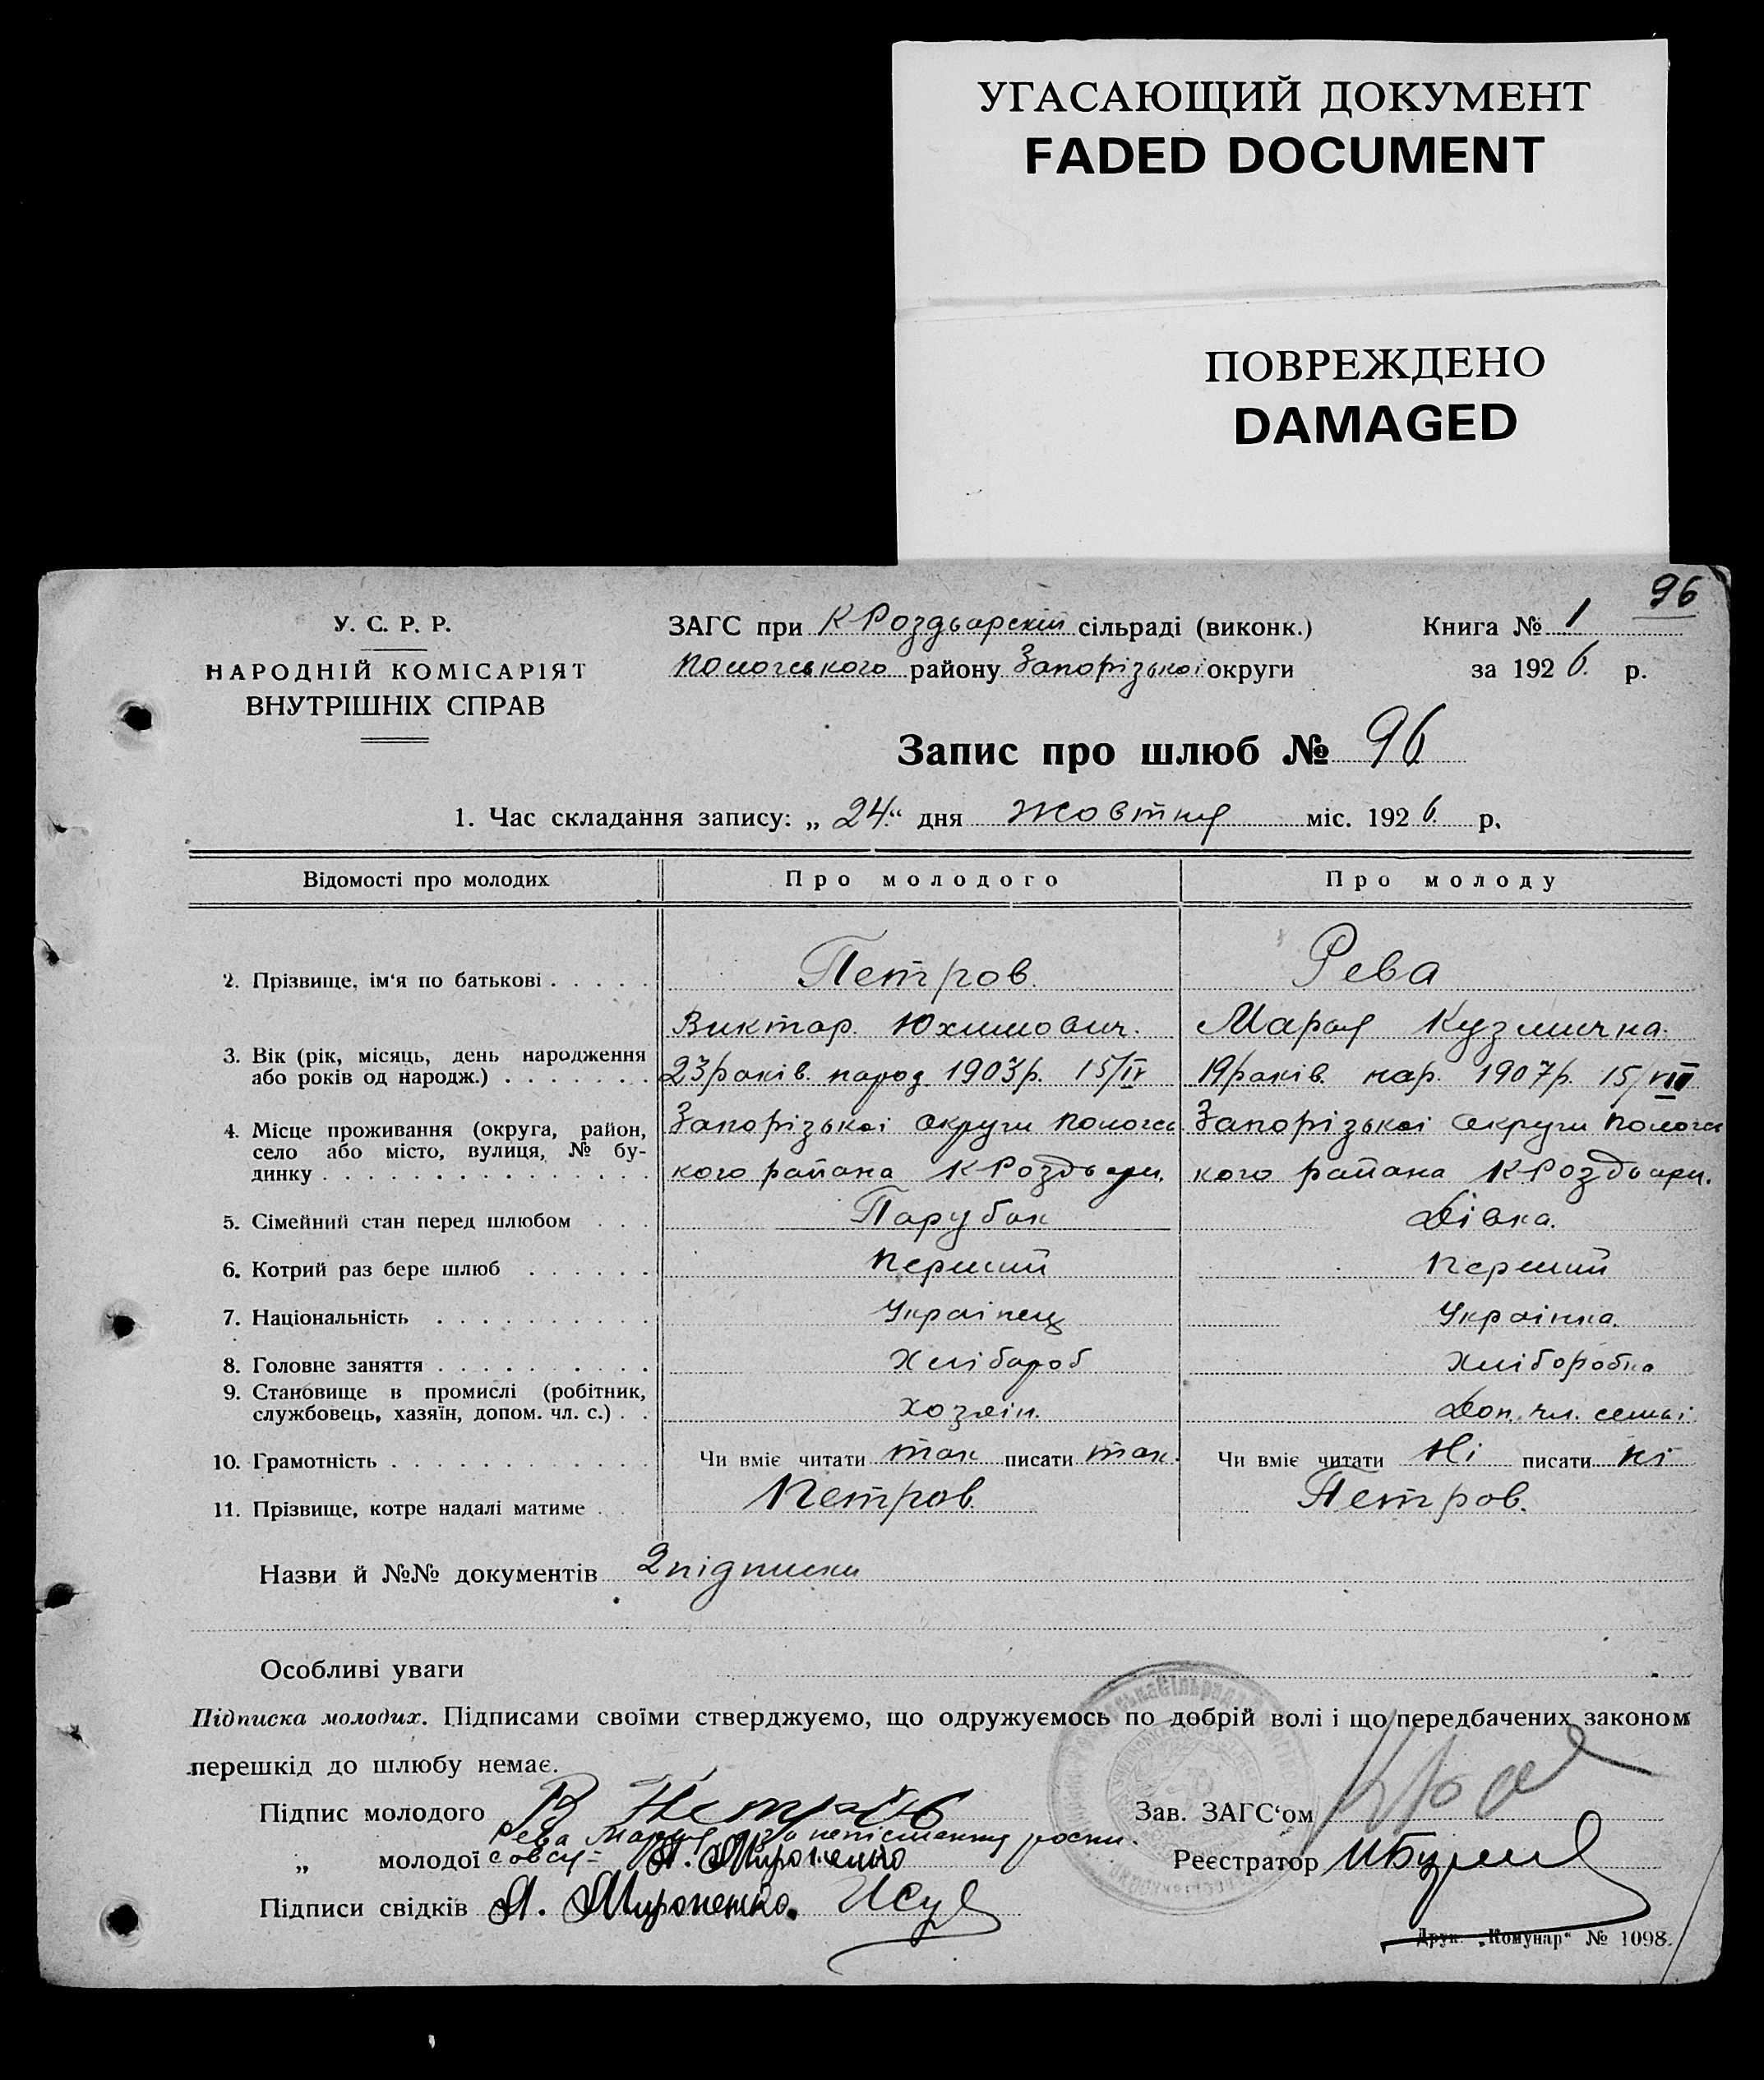 УГАСАЮЩИЙ ДОКУМЕНТ
FADED DOCUMENT
ПОВРЕЖДЕНО
DAMAGED
96
У. С. Р. Р.
НАРОДНІЙ КОМІСАРІЯТ
ВНУТРІШНІХ СПРАВ
ЗАГС при К Роздьарскій сільраді (виконк.)
Пологського району Запорізькоі округи
Книга № 1
за 1926. р.
Запис про шлюб № 96
1. Час складання запису: „ 24.“ дня жовтня міс. 1926. р.
Відомості про молодих Про молодого Про молоду
2. Прізвище, ім'я по батькові Петров. Рева
Виктар. Юхимович. Марія Кузмична.
3. Вік (рік, місяць, день народження або років од народж.) 23 раків. народ 1903р. 15/IV 19 раків. нар. 1907р. 15/VIII
4. Місце проживання (округа, район, село або місто, вулиця, № будинку Запорізькоі округи Пологсь Запорізькоі округи Пологсь
кого района К Роздьари. кого района К Роздьари.
5. Сімейний стан перед шлюбом Парубок Дівка.
6. Котрий раз бере шлюб Перший Перший
7. Національність Украінец Украінка.
8. Головне заняття Хлібароб Хліборобка
9. Становище в промислі (робітник, службовець, хазяїн, допом. чл. с.) Хозяін. Доп. чл. семьі
10. Грамотність Чи вміє читати так писати так. Чи вміє читати Ні писати ні
11. Прізвище, котре надалі матиме Петров. Петров.
Назви й №№ документів 2 підписки
Особливі уваги
Підписка молодих. Підписами своїми стверджуємо, що одружуємось по добрій волі і що передбачених законом
перешкід до шлюбу немає.
Підпис молодого В Петров
Зав. ЗАГС‘ом
Рева Марія за неписьменну роспи.
„ молодої А. Мироненко
Реєстратор
Підписи свідків А. Мироненко.
Друк. „Комунар“ № 1098.